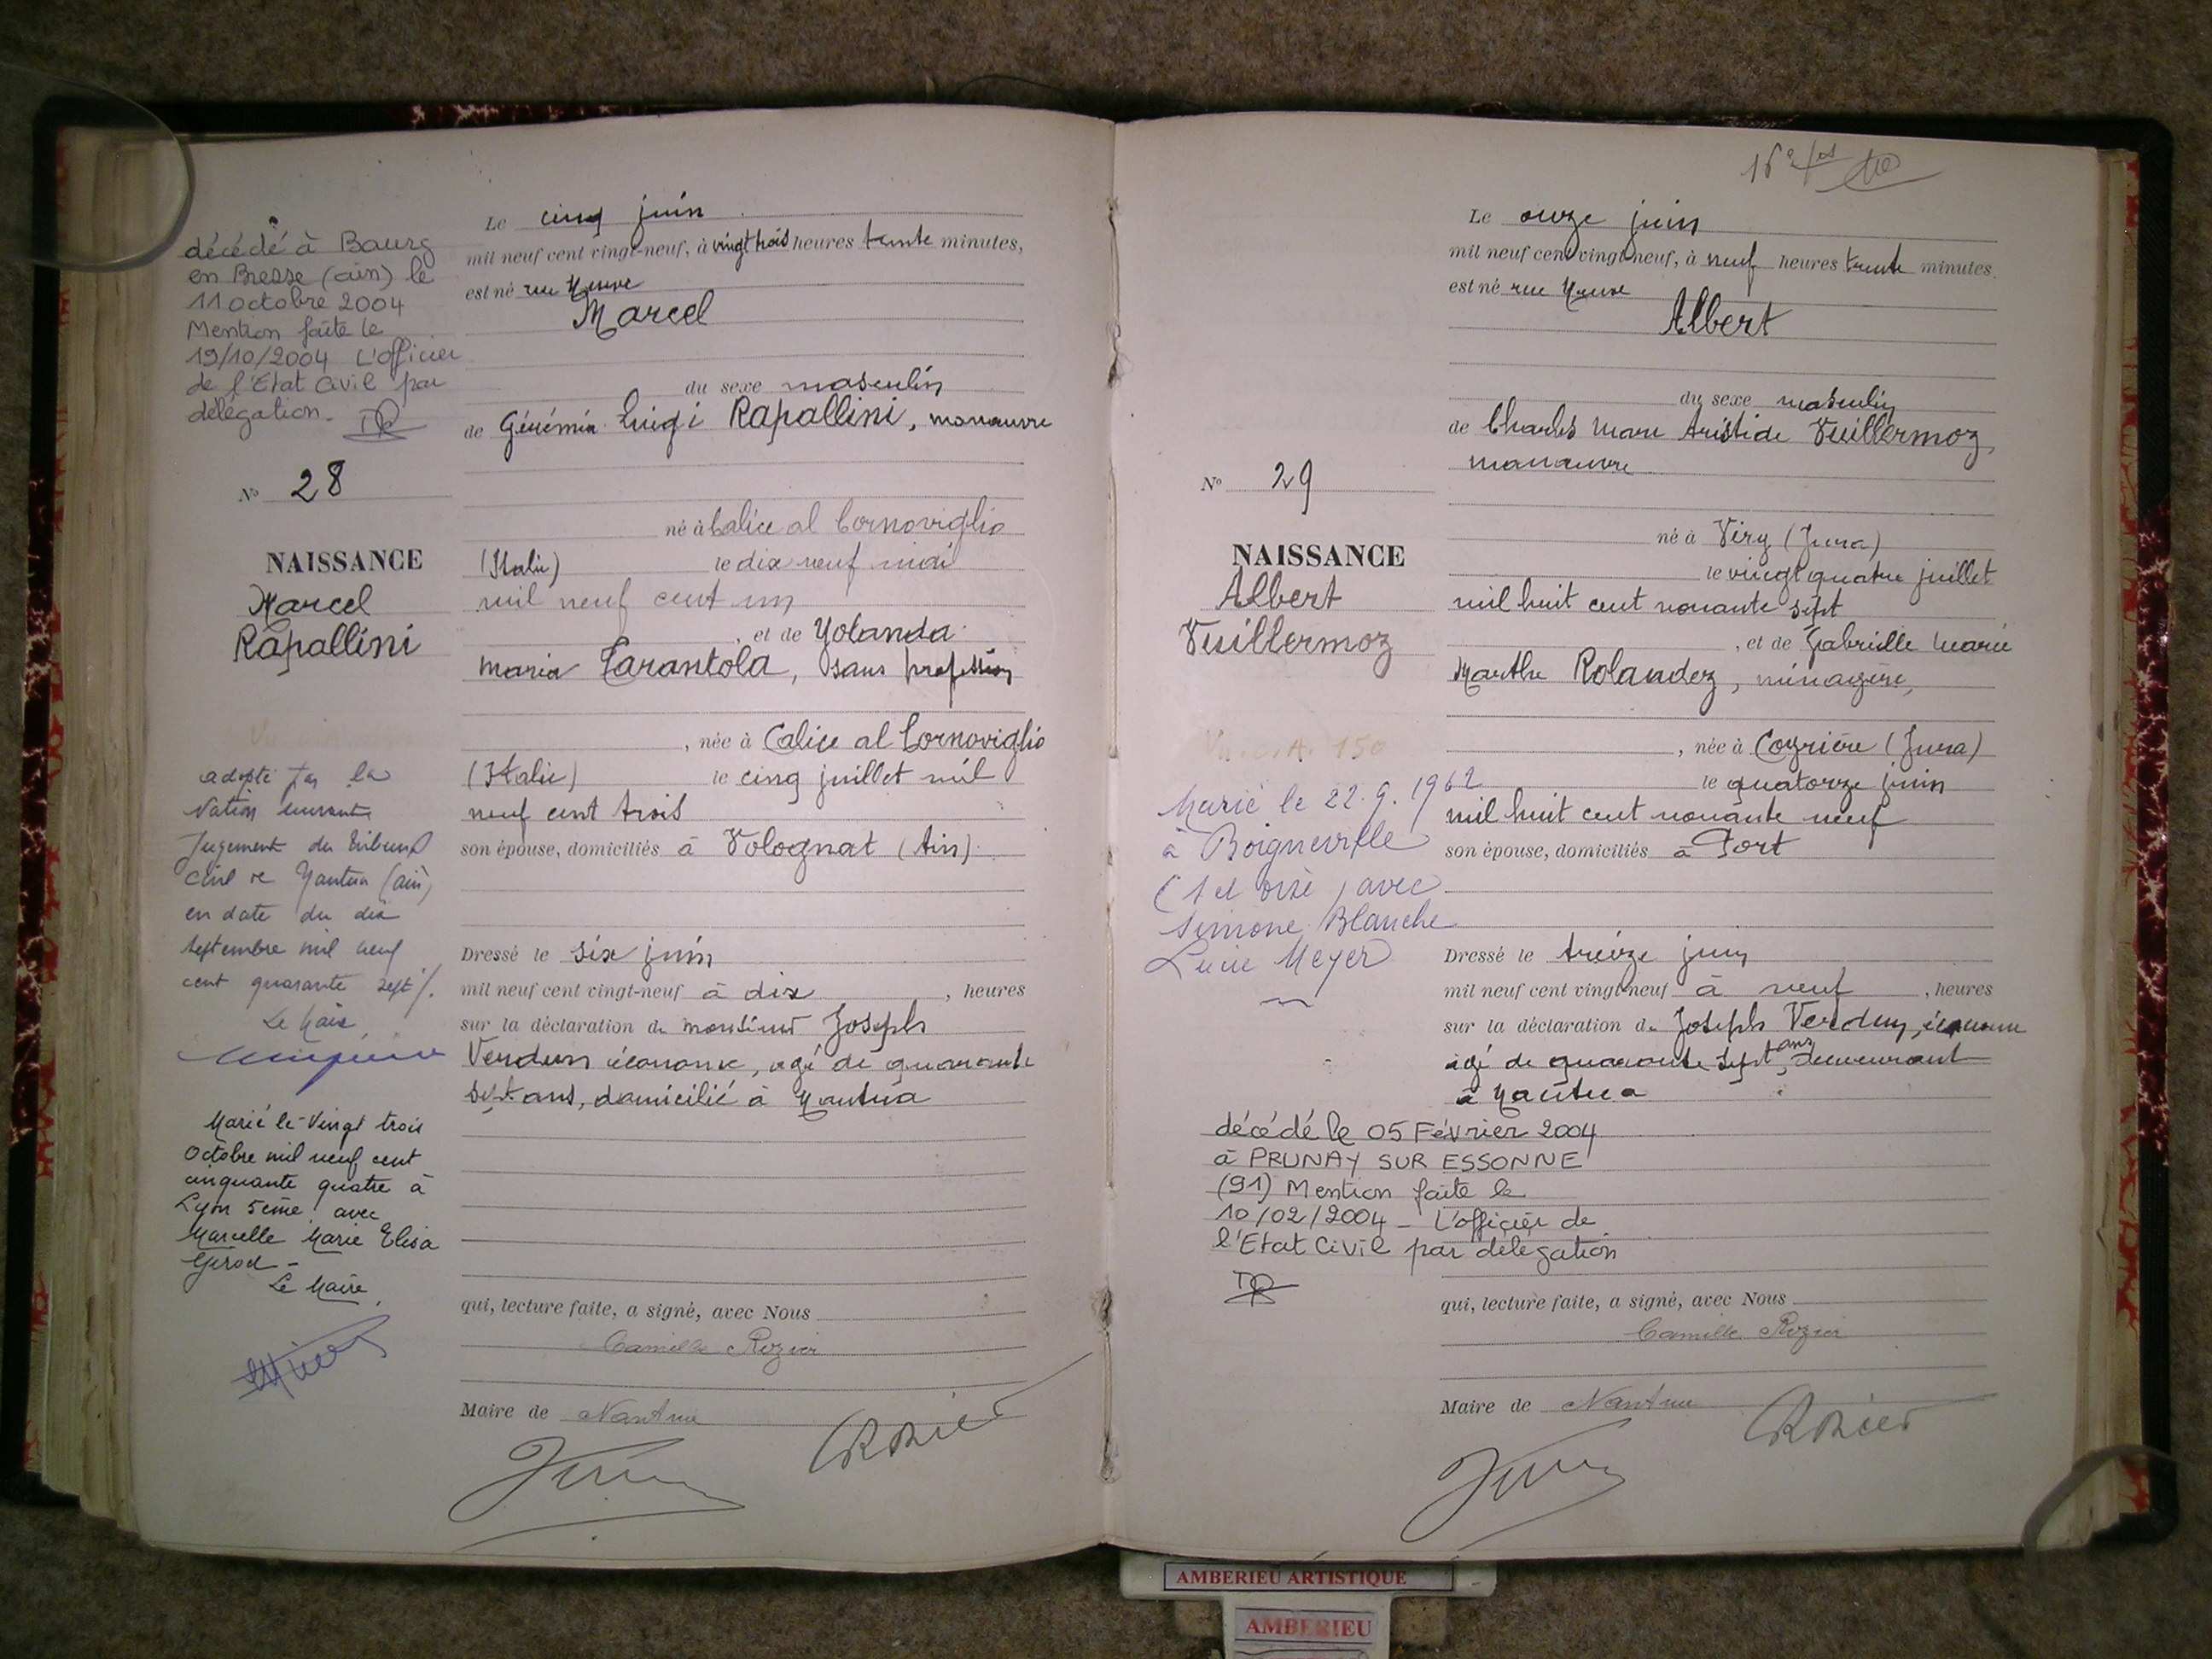 décédé à Bourg
en Bresse (ain) le
11 octobre 2004
Mention faite le
19/10/2004 L'officier
de l'Etat Civil par
délégation.
N° 28
NAISSANCE
Marcel
Rapallini
adopté par la
Nation suivant
Jugement du Tribunal
Civil de Nantua (ain)
en date du dix
septembre mil neuf
cent quarante sept /.
Le Maire,
Marié le Vingt trois
Octobre mil neuf cent
cinquante quatre à
Lyon 5ème avec
Marcelle Marie Elisa
Girod -
Le Maire,
Le cinq juin
mil neuf cent vingt-neuf, à vingt trois heures trente minutes,
est né rue Neuve
Marcel
du sexe masculin
de Gérémia Luigi Rapallini, manœuvre
né à Calice al Cornoviglio
(Italie) le dix neuf mai
mil neuf cent un
, et de Yolanda
Maria Tarantola, sans profession
, née à Calice al Cornoviglio
(Italie) le cinq juillet mil
neuf cent trois
son épouse, domiciliés à Volognat (Ain)
Dressé le six juin
mil neuf cent vingt-neuf à dix , heures
sur la déclaration de monsieur Joseph
Verdun économe, agé de quarante
sept ans, domicilié à Nantua
qui, lecture faite, a signé, avec Nous
Camille Rozier
Maire de Nantua
CRozier
16e
N° 29
NAISSANCE
Albert
Vuillermoz
150
Marié le 22.9.1962
à Boigneville
(S et Oise) avec
Simone Blanche
Lucie Meyer
Le onze juin
mil neuf cent vingt-neuf, à neuf heures trente minutes.
est né rue Neuve
Albert
du sexe masculin
de Charles Marie Aristide Vuillermoz,
manœuvre
né à Viry (Jura)
le vingt quatre juillet
mil huit cent nonante sept
, et de Gabrielle Marie
Marthe Rolandez, ménagère,
, née à Coyrière (Jura)
le quatorze juin
mil huit cent nonante neuf
son épouse, domiciliés à Port
Dressé le treize juin
mil neuf cent vingt-neuf à neuf , heures
sur la déclaration de Joseph Verdun, économe
agé de quarante sept ans, demeurant
à Nantua
décédé le 05 Février 2004
à PRUNAY SUR ESSONNE
(91) Mention faite le
10/02/2004 - L'officier de
l'Etat Civil par délégation
qui, lecture faite, a signé, avec Nous
Camille Rozier
Maire de Nantua
CRozier
AMBERIEU ARTISTIQUE
AMBERIEU